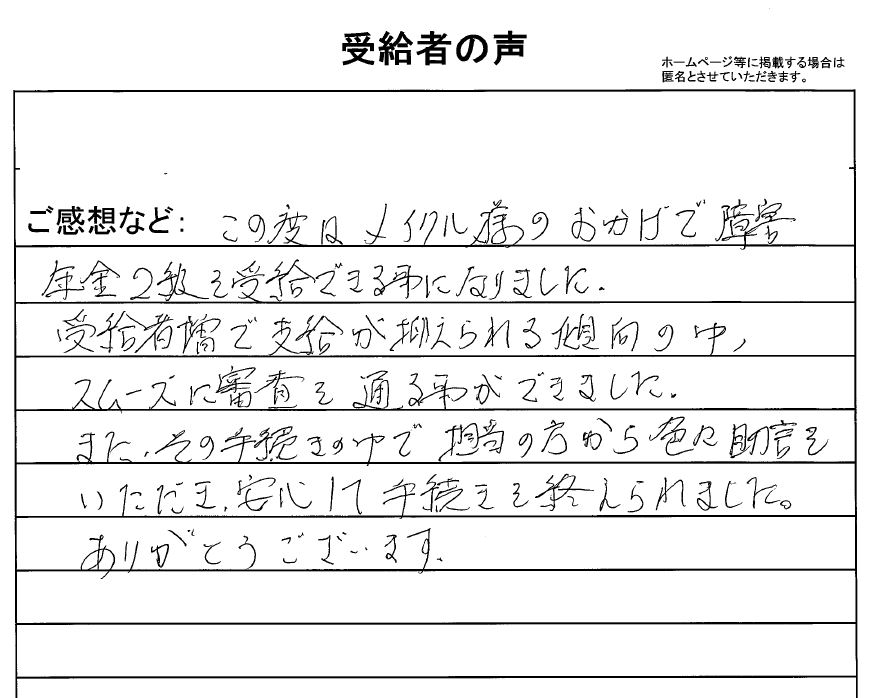 受給者の声
ホームページ等に掲載する場合は
匿名とさせていただきます。
ご感想など: この度はメイクル様のおかげで障害
年金2級を受給できる事になりました.
受給者増で支給が抑えられる傾向の中,
スムーズに審査を通る事ができました.
また、その手続きの中で担当の方から色々助言を
いただき、安心して手続きを終えられました。
ありがとうございます.